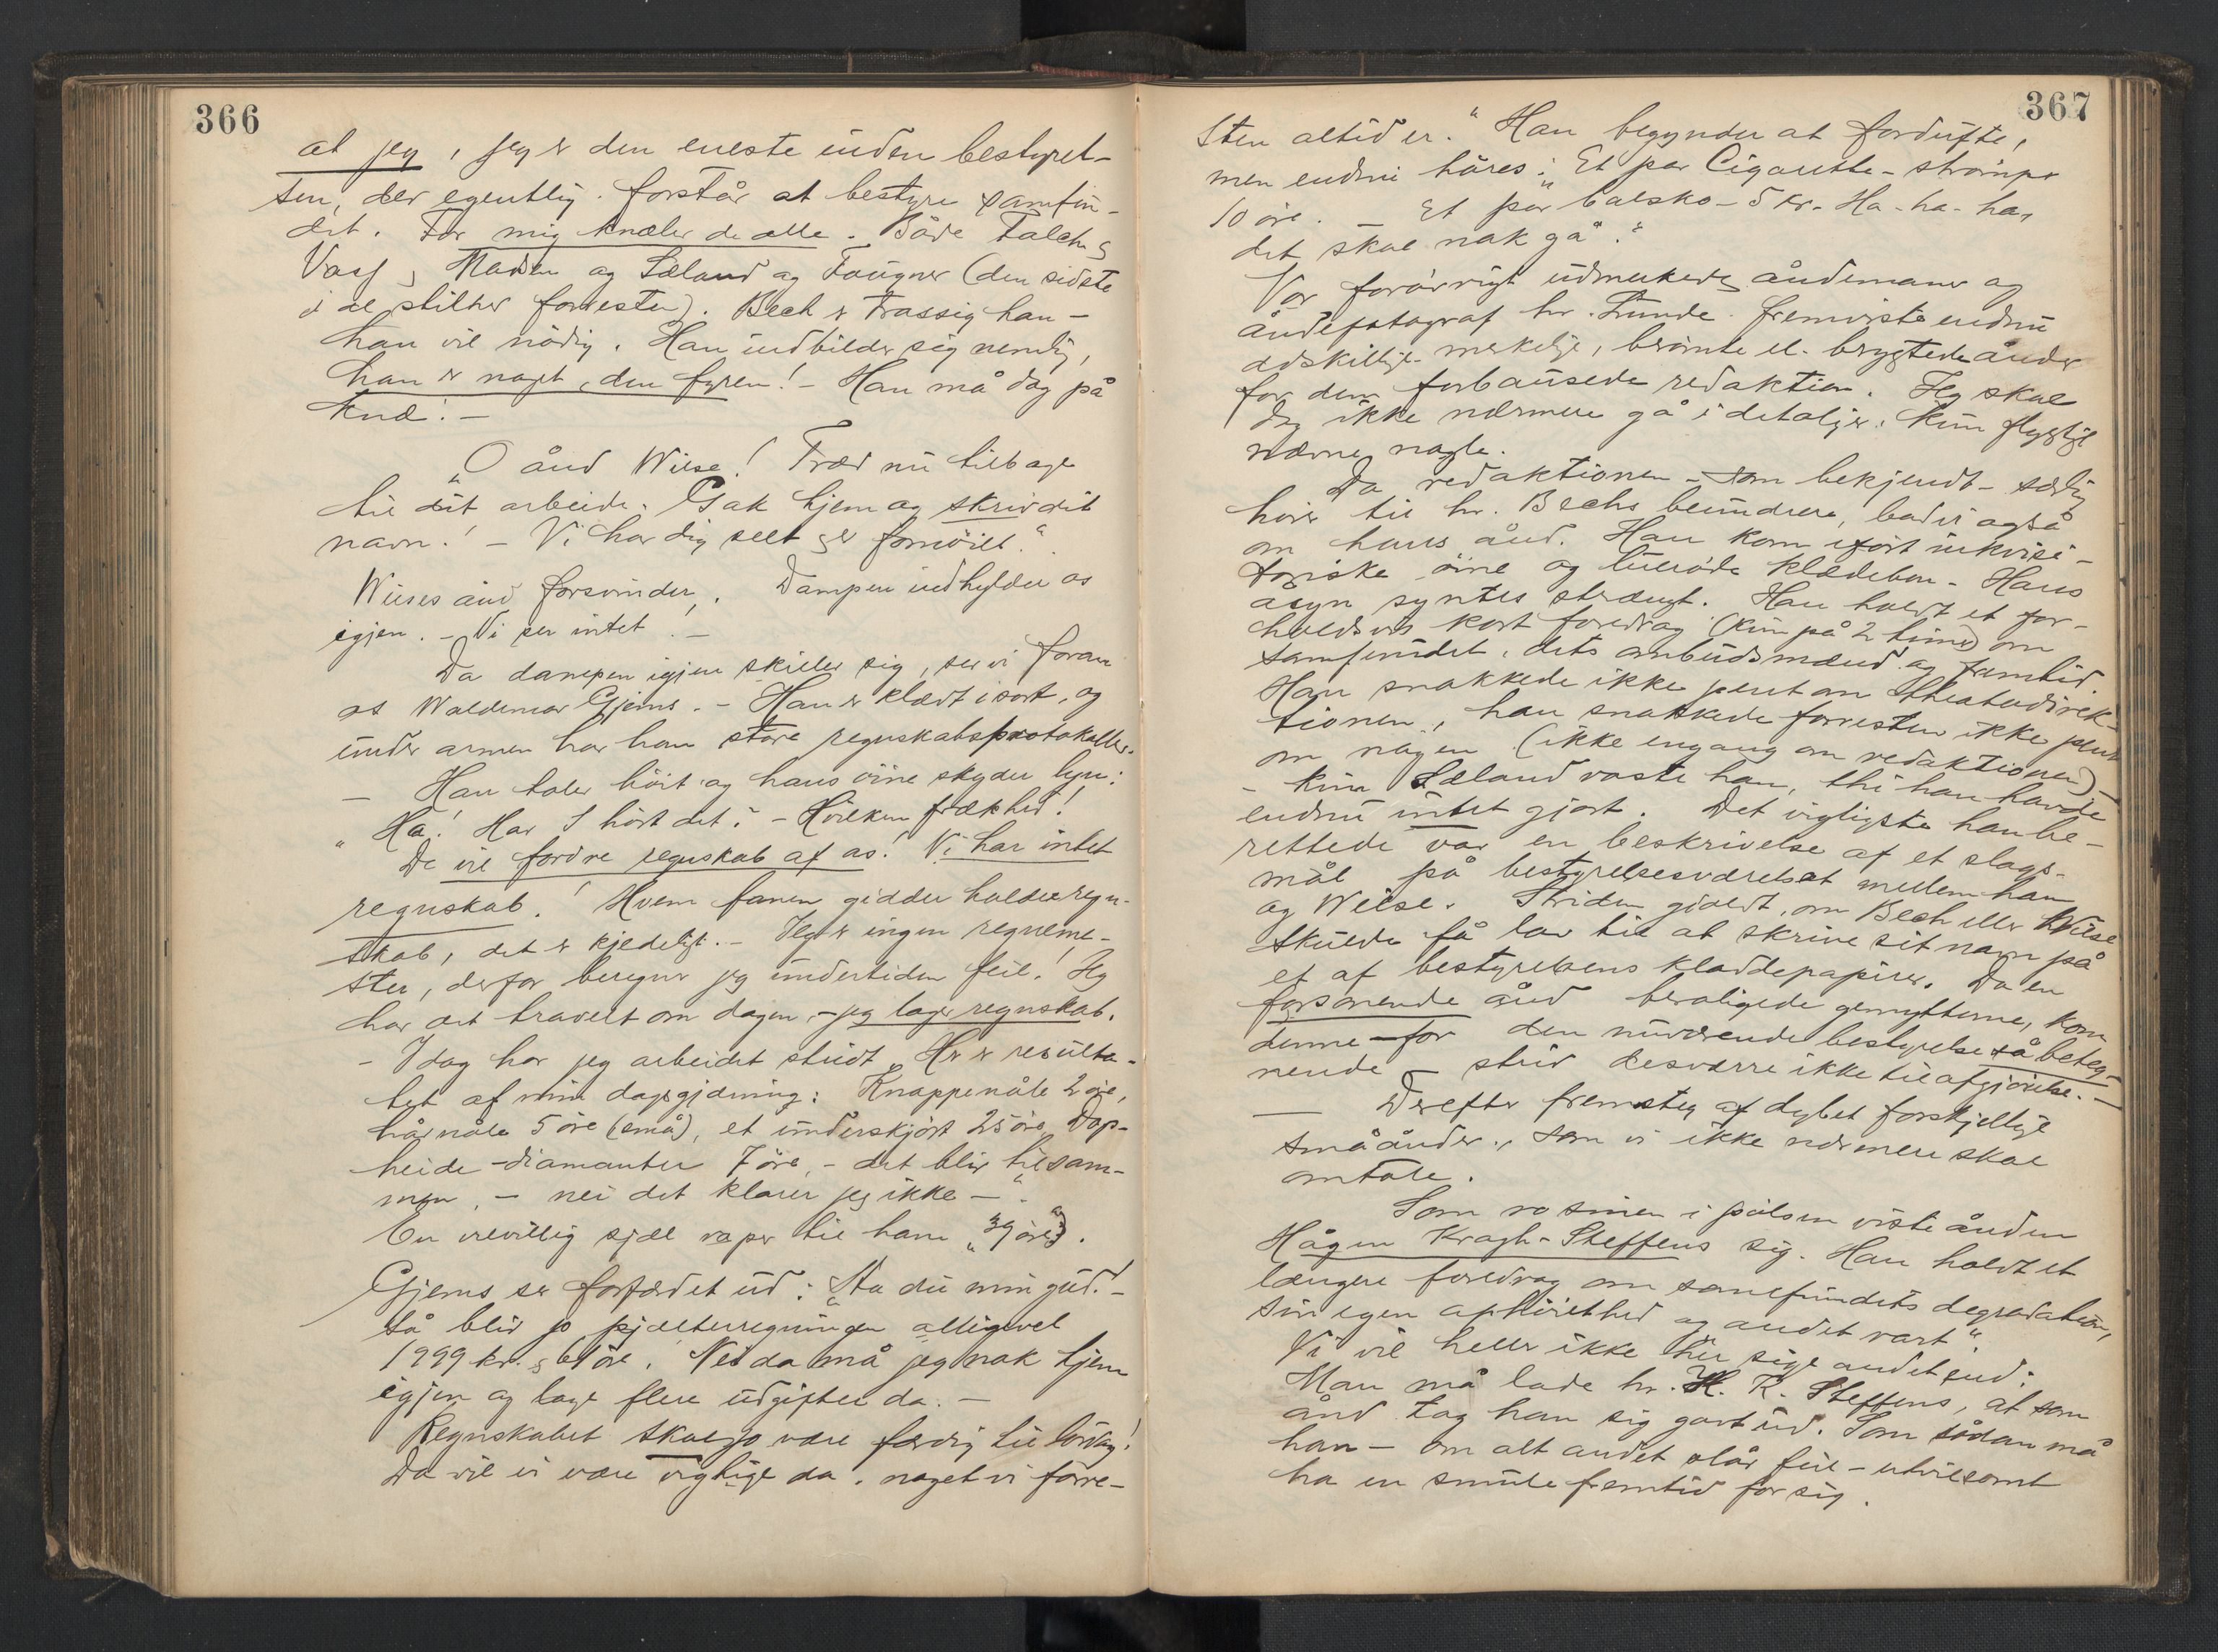 366
at jeg, jeg er den eneste inden bestyrel-
sen, der egentlig forstår at bestyre samfun-
det. For mig knæler de alle. Både Falch &
Vasf, Madsen og Sæland og Fougner (den sidste
i al stilhed forresten). Bech er trassig han -
han vil nödig. Han indbilder sig nemlig,
han er noget, den fyren! - Han må dog på
knæ! -
"O ånd Wiese! Træd nu tilbage
til dit arbeide. Gak hjem og skriv dit
navn! - Vi har dig seet & er fornöiet."
Wieses ånd forsvinder. Dampen indhyller os
igjen. - Vi ser intet! -
Da dampen igjen skiller sig, ser vi foran
os Waldemar Gjems. - Han er klædt i sort, og
under armen har han store regnskabsprotokoller.
- Han taler höit og hans öine skyder lyn:
"Ha! Har I hört det? - Hvilken frækhed!
De vil fordre regnskab af os! Vi har intet
regnskab! Hvem fanen gidder holde regn-
skab, det er kjedeligt. - Jeg er ingen regneme-
ster, derfor beregner jeg undertiden feil! Jeg
har det travelt om dagen, - jeg lager regnskab.
- Idag har jeg arbeidet stridt. Her er resulta-
tet af min dagsgjerning: Knappenåle 2 öre,
hårnåle 5 öre (små), et underskjört 25 öre, Dop-
heide-diamanter 7 öre, - det blir tilsam-
men, - nei det klarer jeg ikke -".
En velvillig sjæl raper til ham "39 öre".
Gjems ser forfærdet ud: "Aa du min gud! -
så blir jo pjalterregningen alligevel
1999 kr. & 61 öre. Nei da må jeg nok hjem
igjen og lage flere udgifter da. -
Regnskabet skal jo være færdig til lördag!
Da vil vi være vigtige da, noget vi forre-
367
sten altid er." Han begynder at fordufte,
men endnu höres: "Et par Cigarette-strömper
10 öre. - Et par balsko - 5 kr. Ha-ha-ha,
det skal nok gå."
Vor forövrigt udmerkede åndemaner og
åndefotograf hr. Lunde fremviste endnu
adskillige merkelige, berömte el. berygtede ånder
for den forbausede redaktion. Jeg skal
dog ikke nærmere gå i detaljer. Kun flygtigt
nævne nogle.
Da redaktionen - som bekjendt - særlig
hörer til hr. Bechs beundrere, bad vi også
om hans ånd. Han kom iført inkvisi-
toriske öine og luerøde klædebon. Hans
åsyn syntes strængt. Han holdt et for-
holdsvis kort foredrag (kun på 2 timer) om
samfundet, dets ombudsmænd og fremtid.
Han snakkede ikke pent om theaterdirek-
tionen, han snakkede forresten ikke pent
om nogen (ikke engang om redaktionen)
- kun Sæland roste han, thi han havde
endnu intet gjort. Det vigtigste han be-
rettede var en beskrivelse af et slags-
mål på bestyrelsesværelset mellem ham
og Weise. Striden gjaldt, om Bech eller Wiese
skulde få lov til at skrive sit navn på
et af bestyrelsens kladdepapirer. Da en
forsonende ånd beroligede gemytterne, kom
denne - for den nuværende bestyrelse så beteg-
nende - strid desværre ikke til afgjörelse. -
Derefter fremsteg af dybet forskjellige
småånder, som vi ikke nærmere skal
omtale.
Som rosinen i pölsen viste ånden
Hågen Kragh-Steffens sig. Han holdt et
længere foredrag om samfundets degradation,
sin egen ophöiethed og andet rart".
Vi vil heller ikke her sige andet end:
Man må lade hr. H. K. Steffens, at som
ånd tog han sig godt ud. Som sådan må
han - om alt andet slår feil - utvilsomt
ha en smule fremtid for sig.